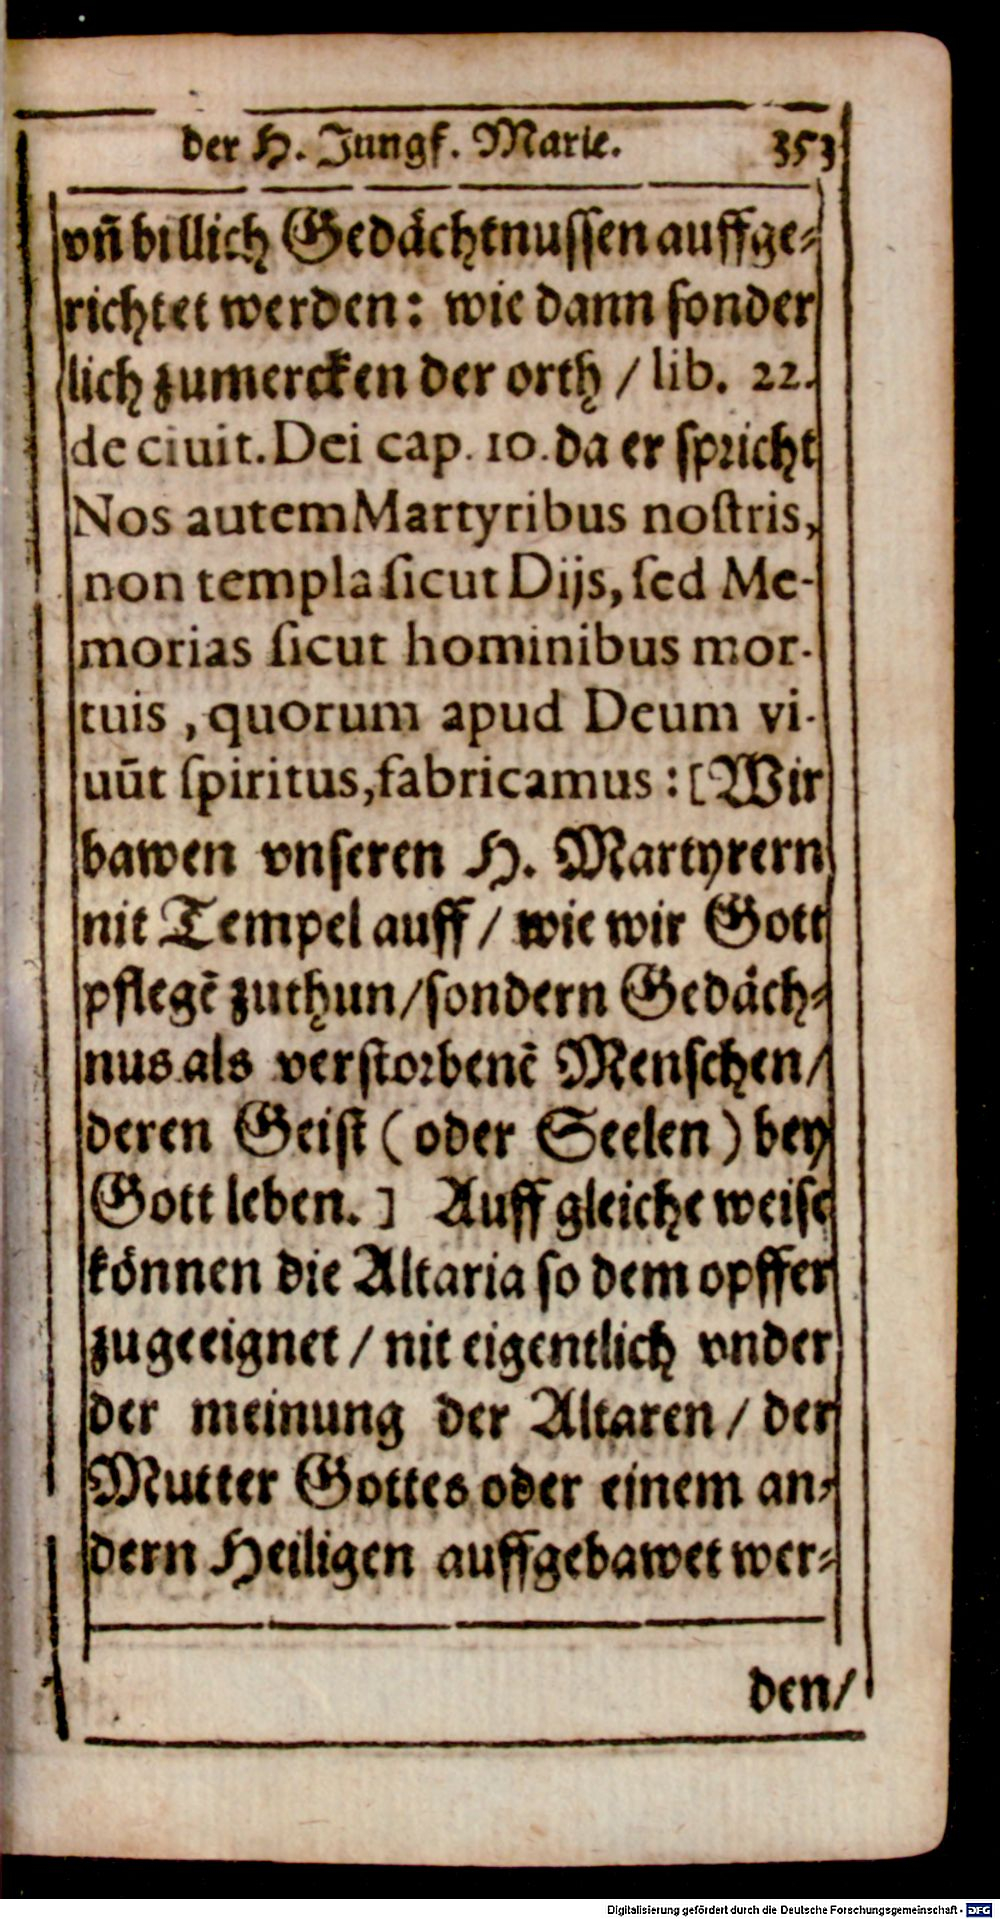 der H. Jungf. Marie. 353
vn̄ billich Gedächtnussen auffge⸗
richtet werden: wie dann sonder
lich zumercken der orth / lib. 22.
de ciuit. Dei cap. 10. da er spricht
Nos autem Martyribus noſtris,
non templa ſicut Dijs, ſed Me-
morias ſicut hominibus mor-
tuis, quorum apud Deum vi-
uūt ſpiritus, fabricamus: [Wir
bawen vnſeren H. Martyrern
nit Tempel auff / wie wir Gott
pflegē zuthun / ſondern Gedäch⸗
nus als verſtorbenē Menſchen /
deren Geiſt (oder Seelen) bey
Gott leben.] Auff gleiche weiſe
können die Altaria ſo dem opffer
zugeeignet / nit eigentlich vnder
der meinung der Altaren / der
Mutter Gottes oder einem an⸗
dern Heiligen auffgebawet wer⸗
den /
Digitalisierung gefördert durch die Deutsche Forschungsgemeinschaft - DFG